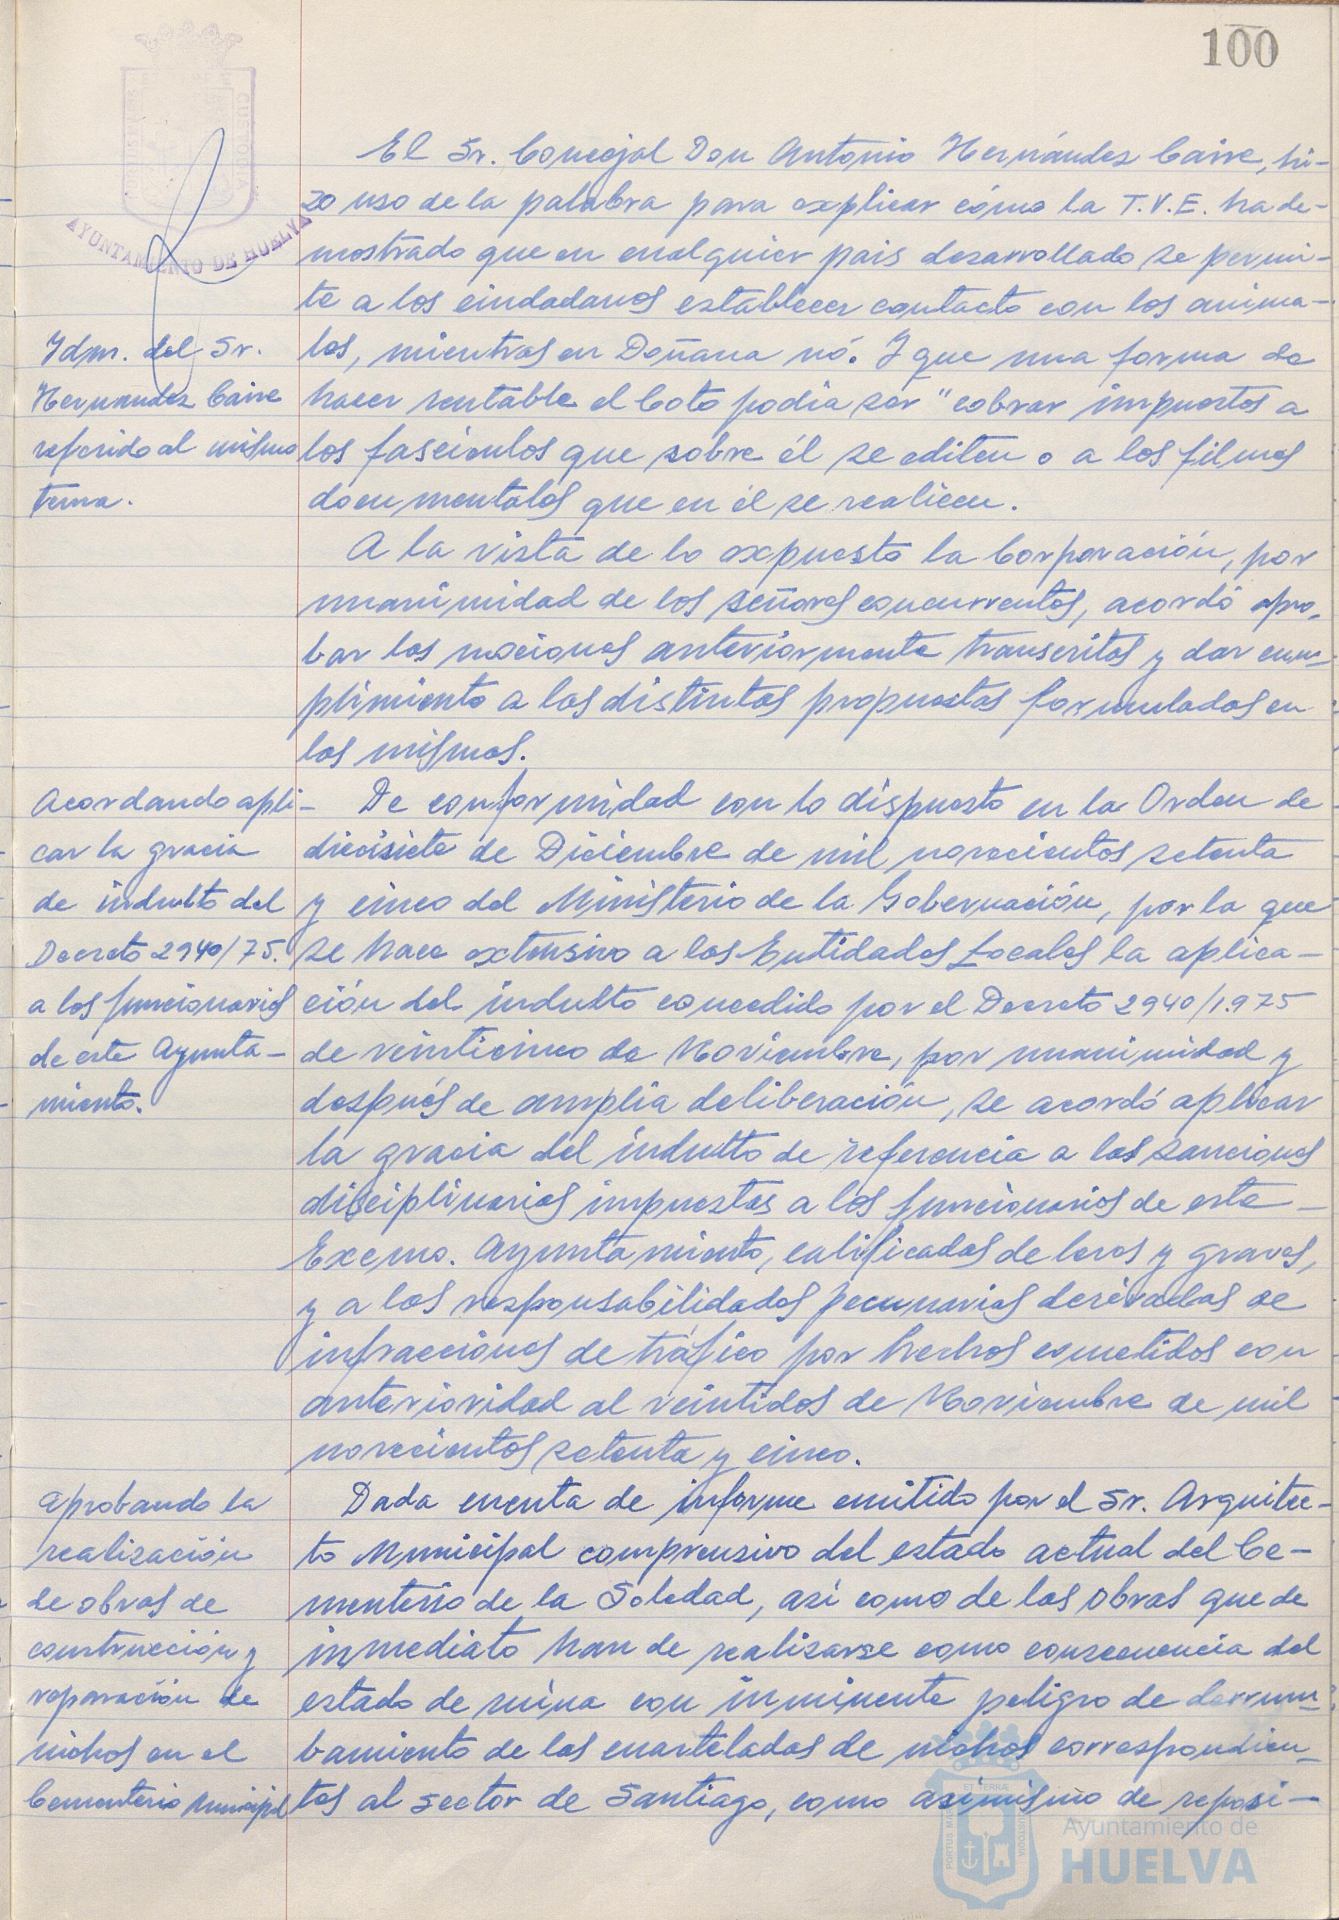 100
AYUNTAMIENTO DE HUELVA
El Sr. Concejal Don Antonio Hernández Caire, hi-
zo uso de la palabra para explicar cómo la T.V.E. ha de-
mostrado que en cualquier pais desarrollado se permi-
te a los ciudadanos establecer contacto con los anima-
les, mientras en Doñana nó. Y que una forma de
hacer rentable el Coto podia ser "cobrar impuestos a
los fascículos que sobre él se editen o a los filmes
documentales que en él se realicen.
Idm. del Sr.
Hernández Caire
referido al mismo
tema.
A la vista de lo expuesto la Corporación, por
unanimidad de los señores concurrentes, acordó apro-
bar las mociones anteriormente transcritas y dar cum-
plimiento a las distintas propuestas formuladas en
las mismas.
Acordando apli-
car la gracia
de indulto del
Decreto 2940/75.
a los funcionarios
de este Ayunta-
miento.
De conformidad con lo dispuesto en la Orden de
diecisiete de Diciembre de mil novecientos setenta
y cinco del Ministerio de la Gobernación, por la que
se hace extensivo a las Entidades Locales la aplica-
ción del indulto concedido por el Decreto 2940/1.975
de veinticinco de Noviembre, por unanimidad y
después de amplia deliberación, se acordó aplicar
la gracia del indulto de referencia a las sanciones
disciplinarias impuestas a los funcionarios de este
Excmo. Ayuntamiento, calificadas de leves y graves,
y a las responsabilidades pecunarias derivadas de
infracciones de tráfico por hechos cometidos con
anterioridad al veintidos de Noviembre de mil
novecientos setenta y cinco.
Aprobando la
realización
de obras de
construcción y
reparación de
nichos en el
Cementerio Municipal
Dada cuenta de informe emitido por el Sr. Arquitec-
to Municipal comprensivo del estado actual del Ce-
menterio de la Soledad, asi como de las obras que de
inmediato han de realizarse como consecuencia del
estado de ruina con inminente peligro de derrum-
bamiento de las cuarteladas de nichos correspondien-
tes al Sector de Santiago, como asimismo de reposi-
Ayuntamiento de
HUELVA